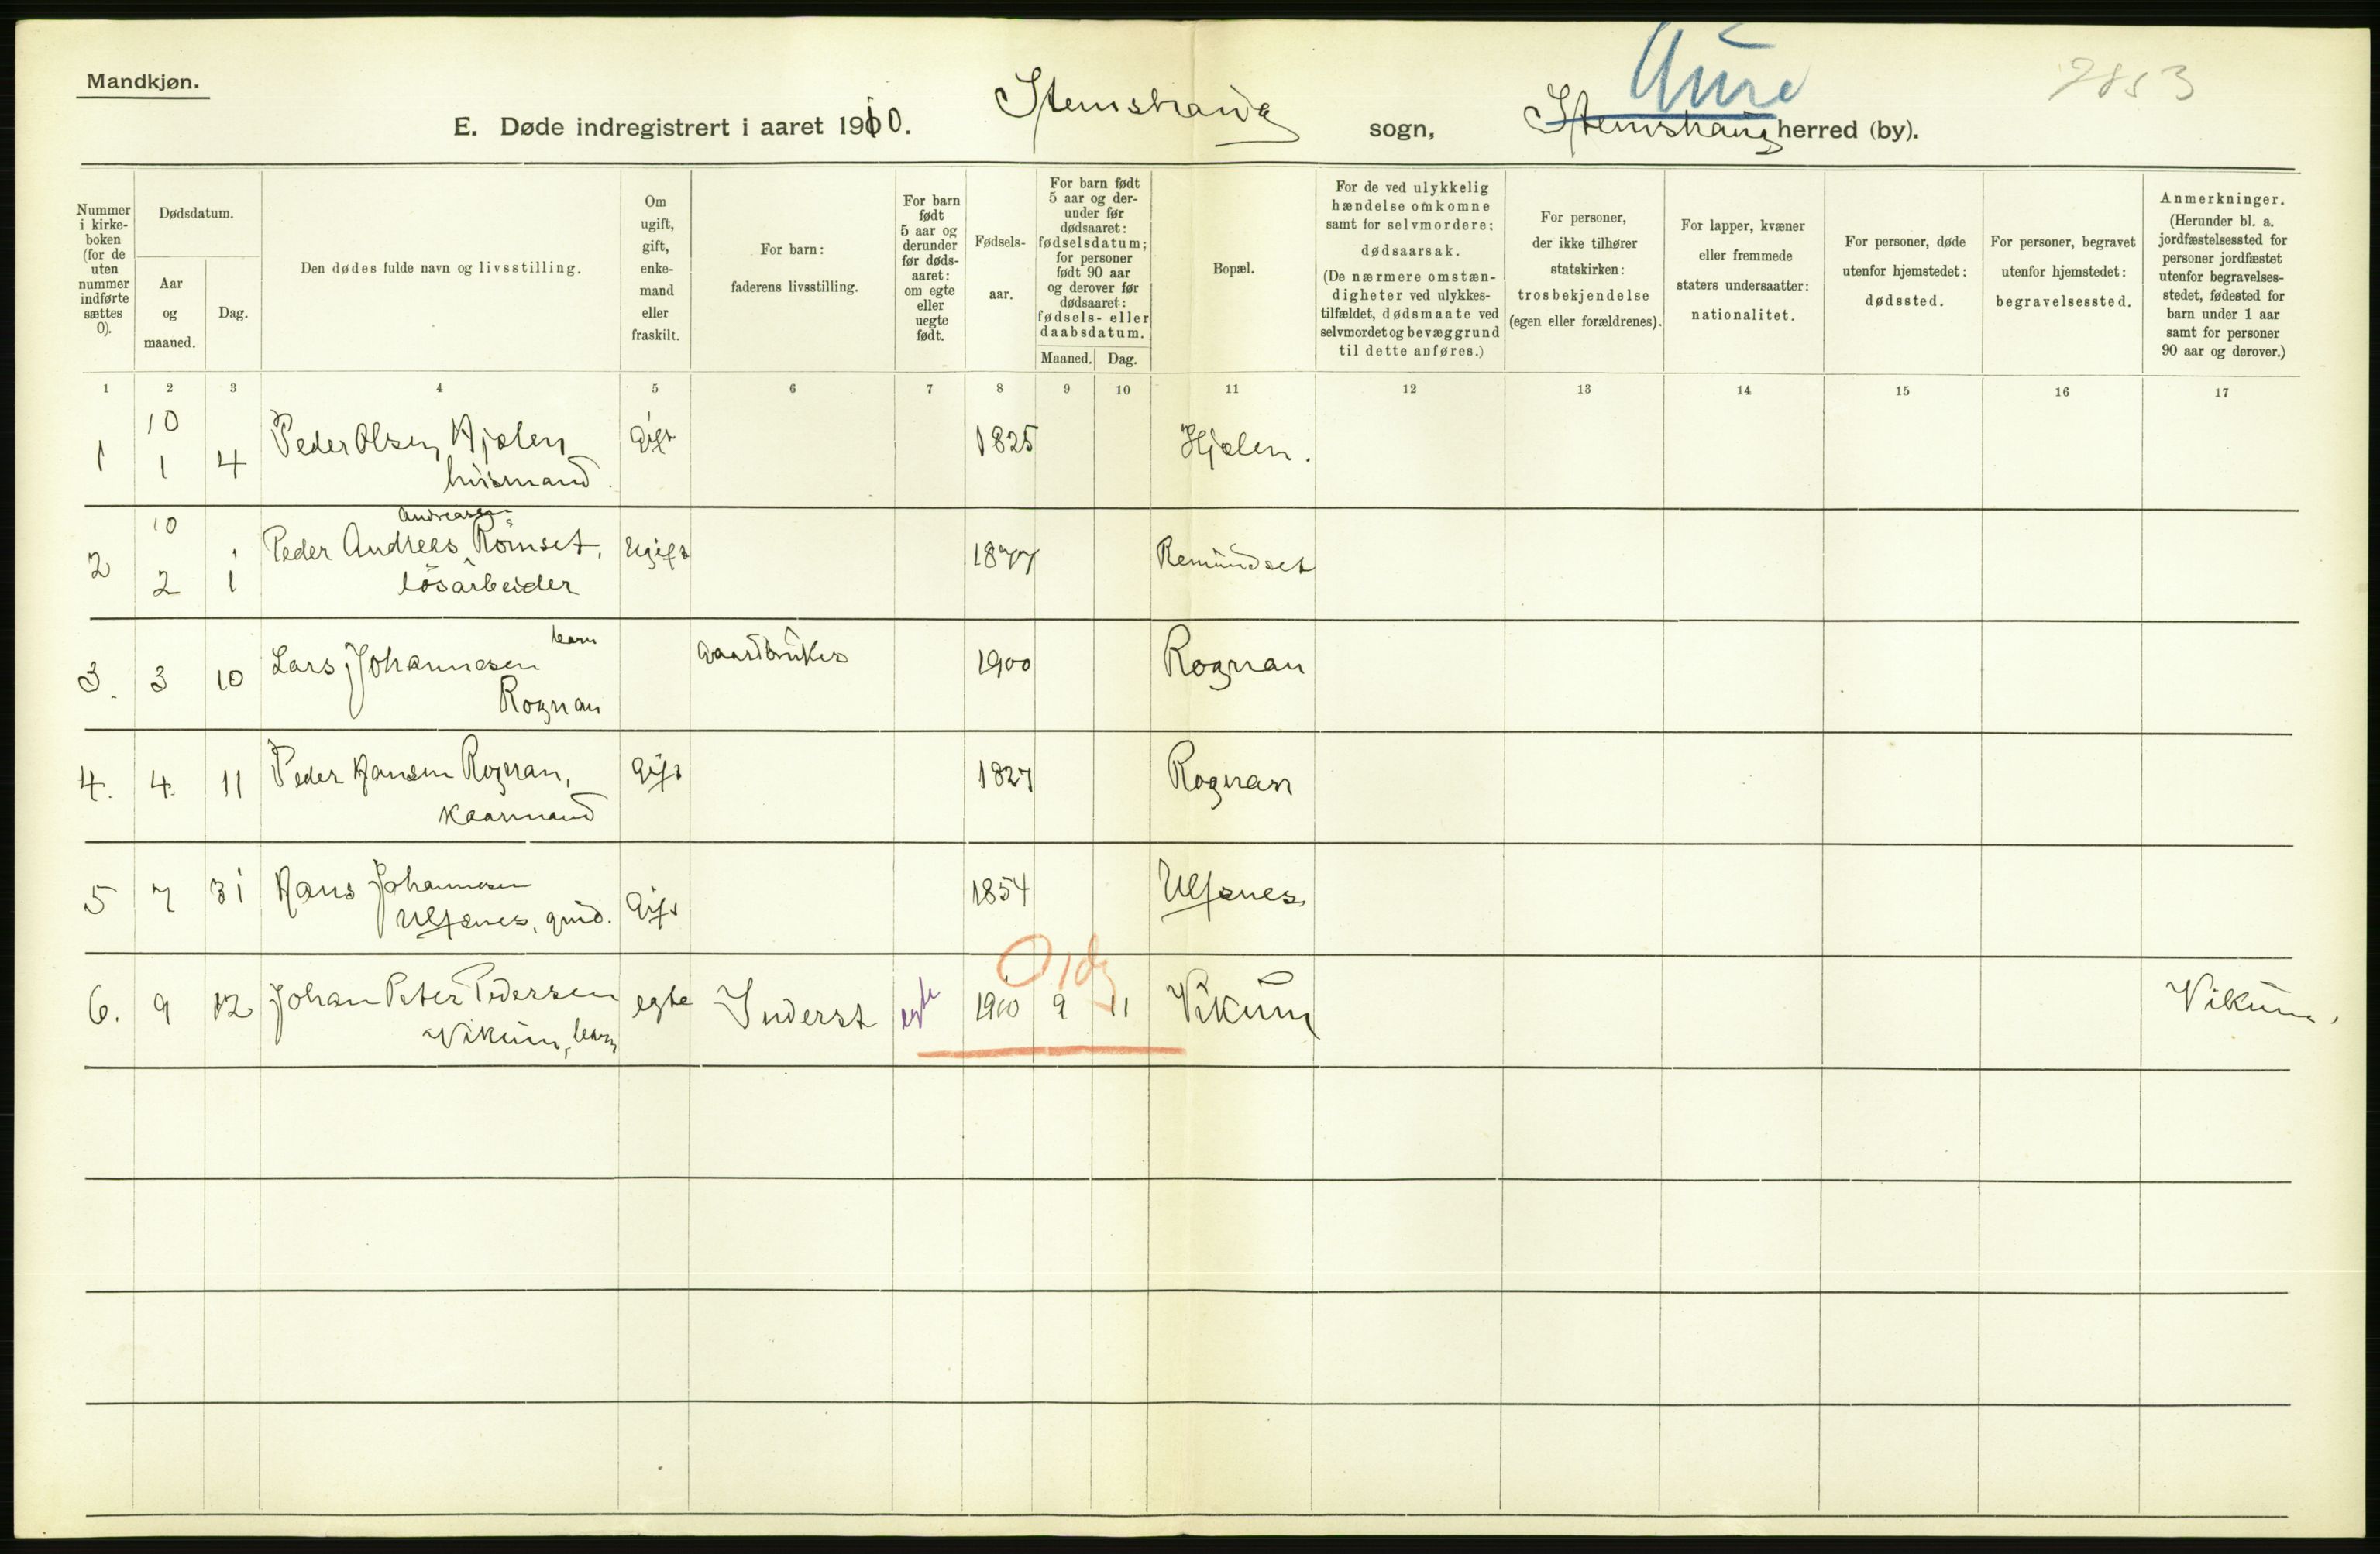 Mandkjøn.
Aure
7853
E. Døde indregistrert i aaret 1910. Stemshaug sogn, Stemshaug herred (by).
Nummer i kirke-boken (for de uten nummer indførte sættes 0).
Dødsdatum.
Aar og maaned.
Dag.
Den dødes fulde navn og livsstilling.
Om ugift, gift, enke-mand eller fraskilt.
For barn: faderens livsstilling.
For barn født 5 aar og derunder før døds-aaret: om egte eller uegte født.
Fødsels-aar.
For barn født 5 aar og der-under før dødsaaret: fødselsdatum; for personer født 90 aar og derover før dødsaaret: fødsels- eller daabsdatum.
Maaned. Dag.
Bopæl.
For de ved ulykkelig hændelse omkomne samt for selvmordere: dødsaarsak. (De nærmere omstæn-digheter ved ulykkes-tilfældet, dødsmaate ved selvmordet og bevæggrund til dette anføres.)
For personer, der ikke tilhører statskirken: trosbekjendelse (egen eller forældrenes).
For lapper, kvæner eller fremmede staters undersaatter: nationalitet.
For personer, døde utenfor hjemstedet: dødssted.
For personer, begravet utenfor hjemstedet: begravelsessted.
Anmerkninger. (Herunder bl. a. jordfæstelsessted for personer jordfæstet utenfor begravelses-stedet, fødested for barn under 1 aar samt for personer 90 aar og derover.)
1 2 3 4 5 6 7 8 9 10 11 12 13 14 15 16 17
1 10 1 4 Peder Olsen Hjælen Gift 1825 Hjælen.
husmand.
2 10 2 1 Peder Andreas Andreasen Römset, Ugift 1877 Remundset
lösarbeider
3. 3 10 Lars Johannesen barn Gaardbruker 1900 Rognan
Rognan
4. 4. 11 Peder Hansen Rognan, Gift 1827 Rognan
Kaarmand
5 7 31 Hans Johannesen Gift 1854 Ulfsnes
Ulfsnes, gmd.
6. 9 12 Johan Peter Pedersen egte Inderst egte 1910 9 11 Vikum Vikum.
Vikum, barn
0 1 dg